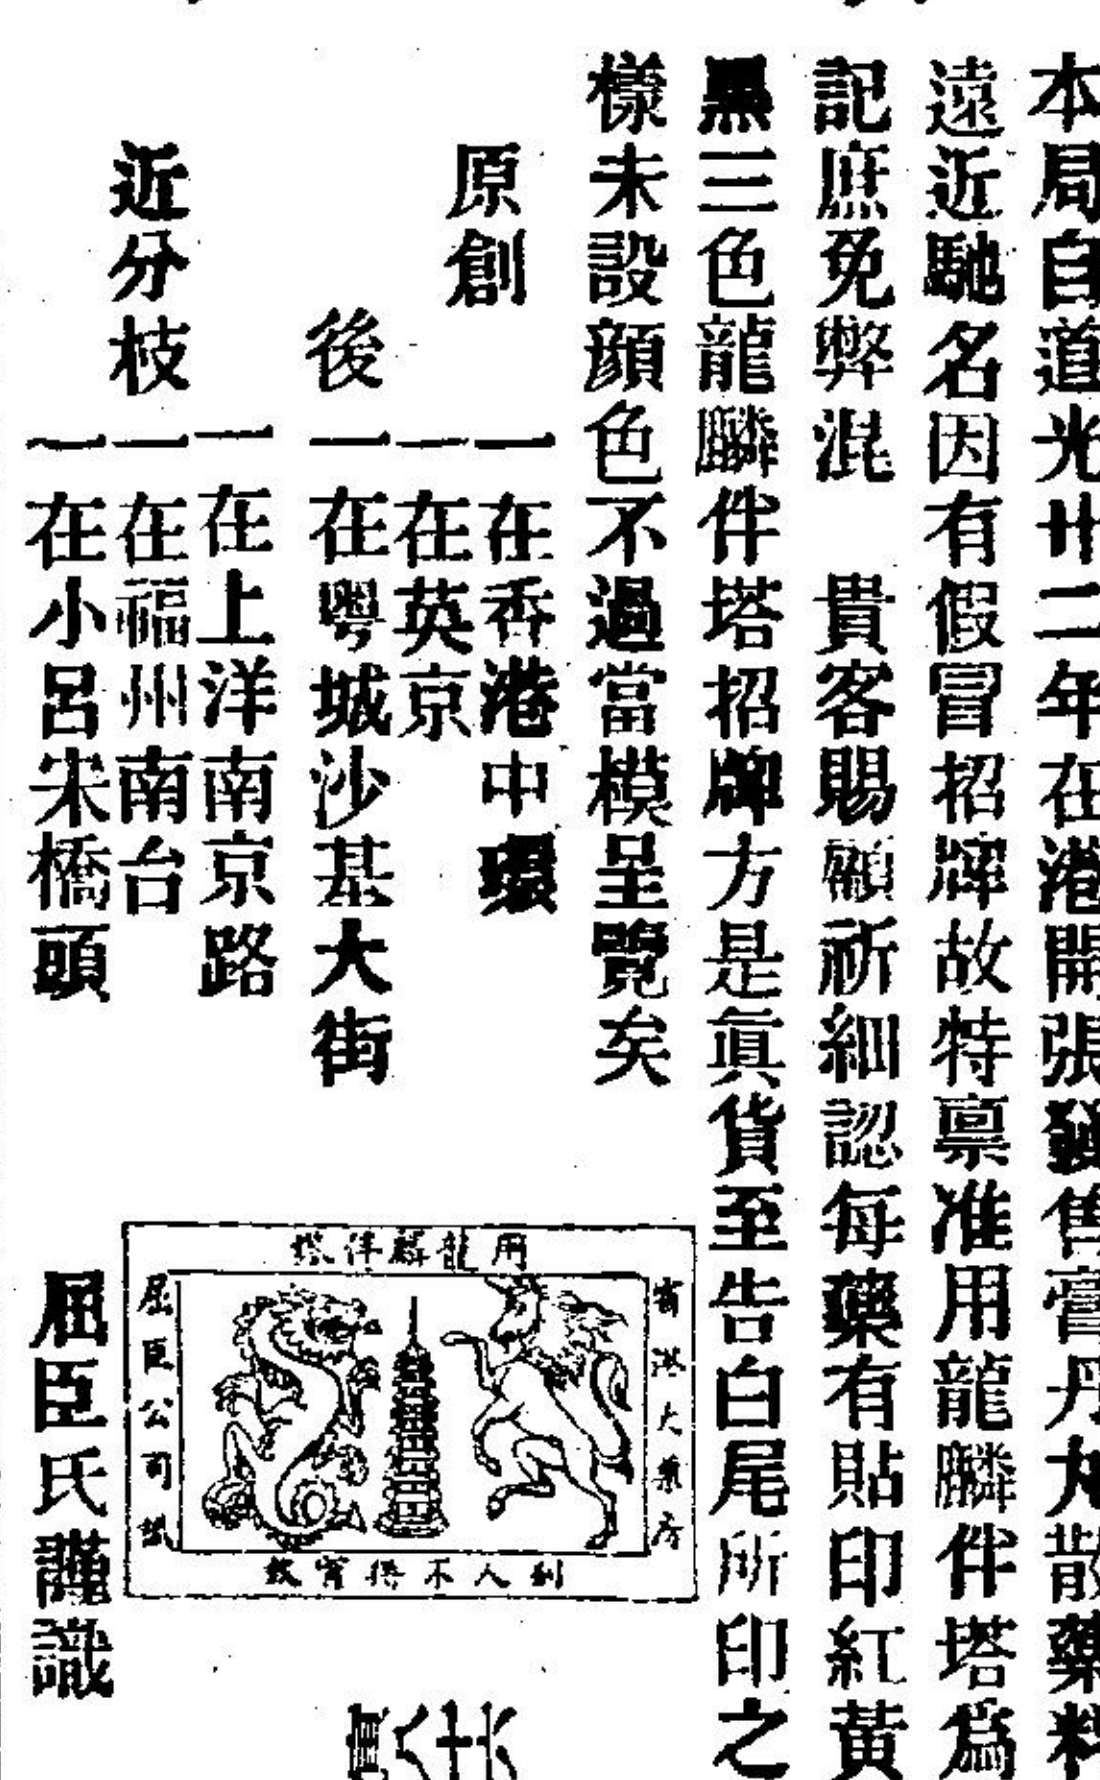 本局自道光卅二年在港開張發售膏丹丸散藥料
遠近馳名因有假冒招牌故特禀准用龍麟伴塔爲
記庶免弊混　貴客賜顧祈細認每藥有貼印紅黃
黑三色龍麟伴塔招牌方是眞貨至告白尾所印之
樣未設顔色不過當模呈覽矣
原創
一在香港中環
一在英京
後一在粵城沙基大街
近分枝
一在上洋南京路
一在福州南台
一在小呂宋橋頭
用龍麟伴塔
香港大藥房
屈臣公司
別人不得
屈臣氏謹識